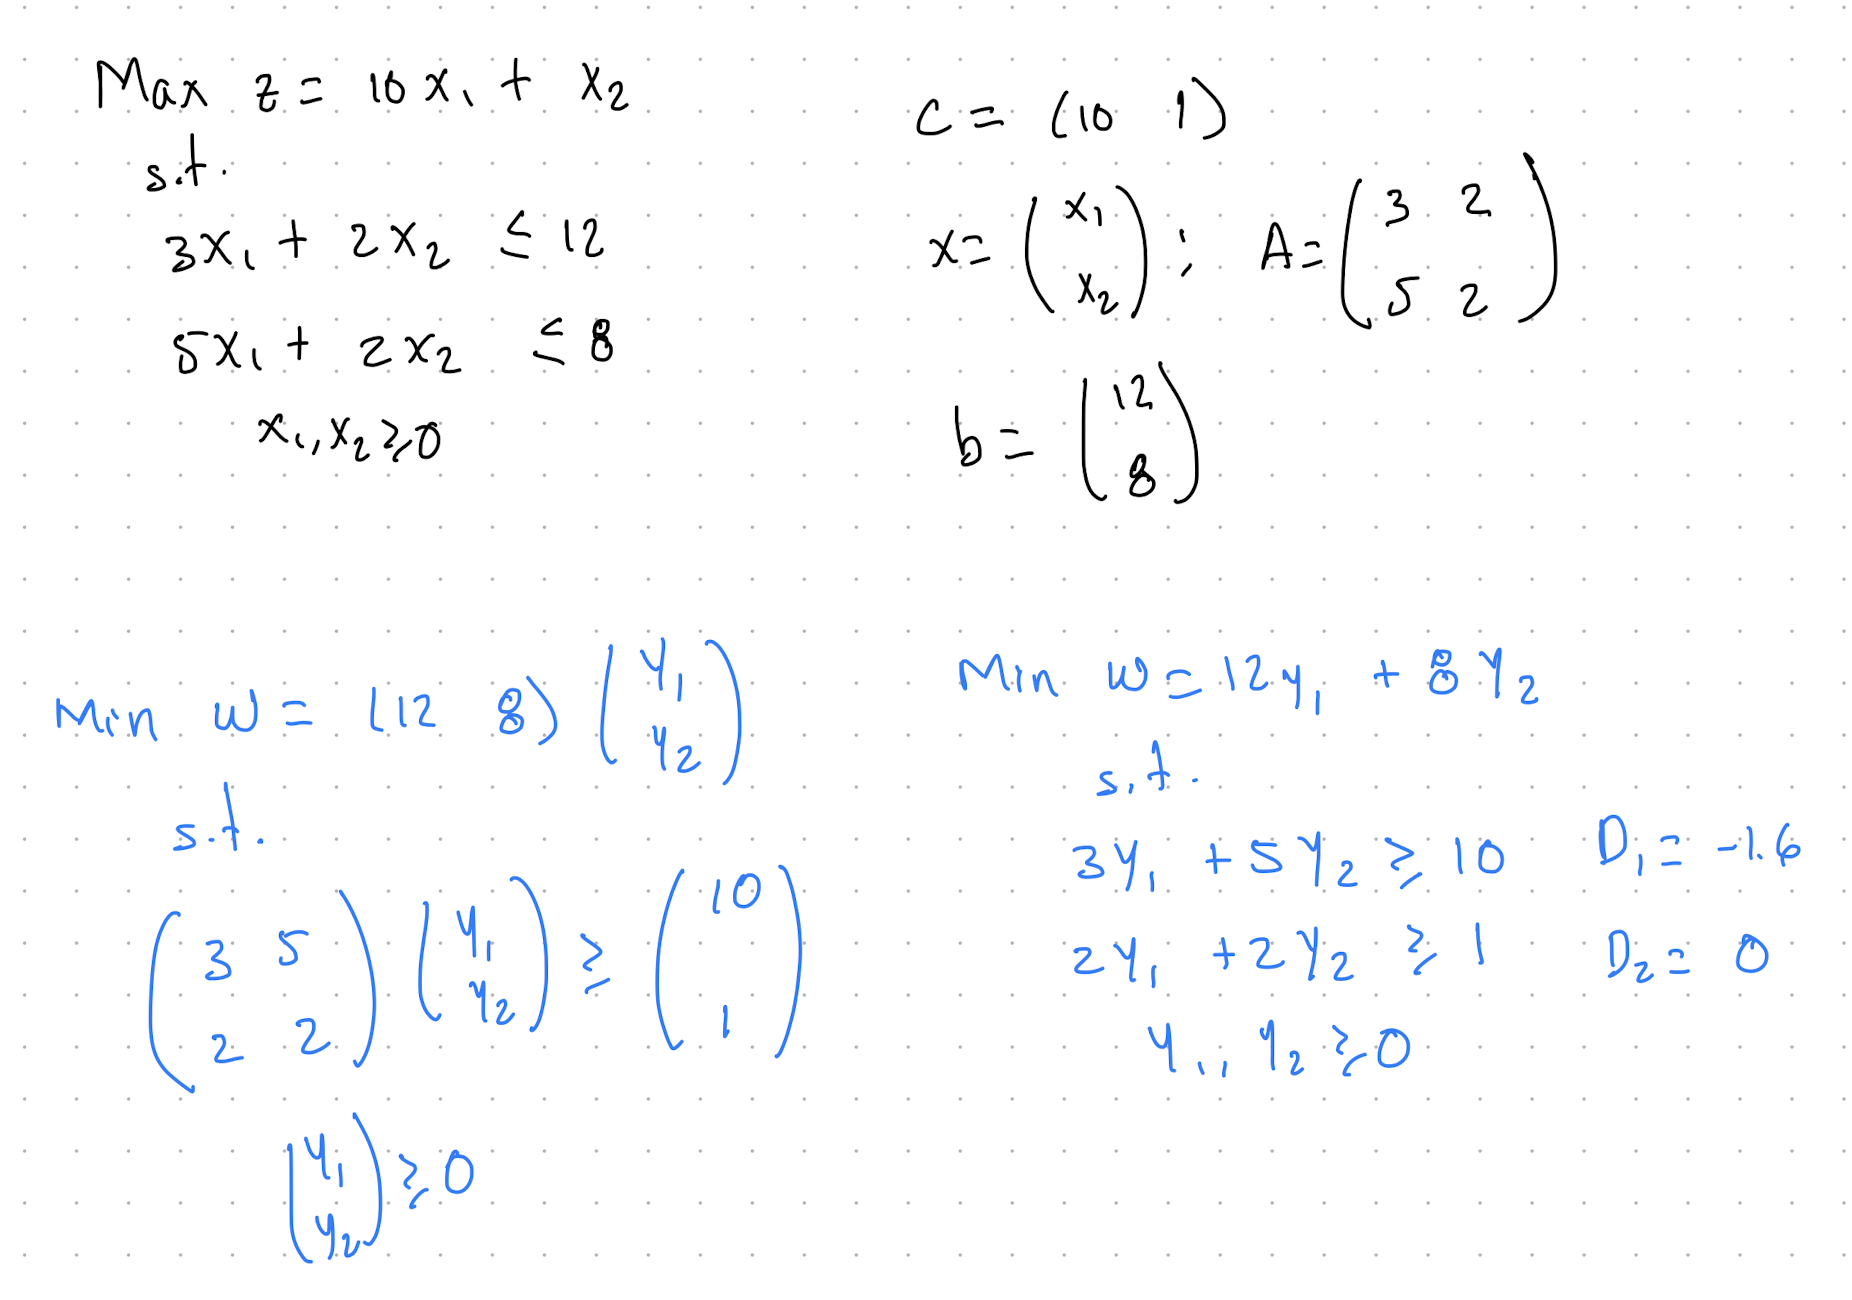 Max z = 10x₁ + x₂
s.t.
3x₁ + 2x₂ ≤ 12
5x₁ + 2x₂ ≤ 8
x₁, x₂ ≥ 0
c = (10 1)
x = (x₁ x₂) ; A = (3 2
5 2)
b = (12
8)
Min w = (12 8) (y₁ y₂)
s.t.
(3 5
2 2) (y₁ y₂) ≥ (10
1)
(y₁ y₂) ≥ 0
Min w = 12y₁ + 8y₂
s.t.
3y₁ + 5y₂ ≥ 10 D₁ = -1.6
2y₁ + 2y₂ ≥ 1 D₂ = 0
y₁, y₂ ≥ 0